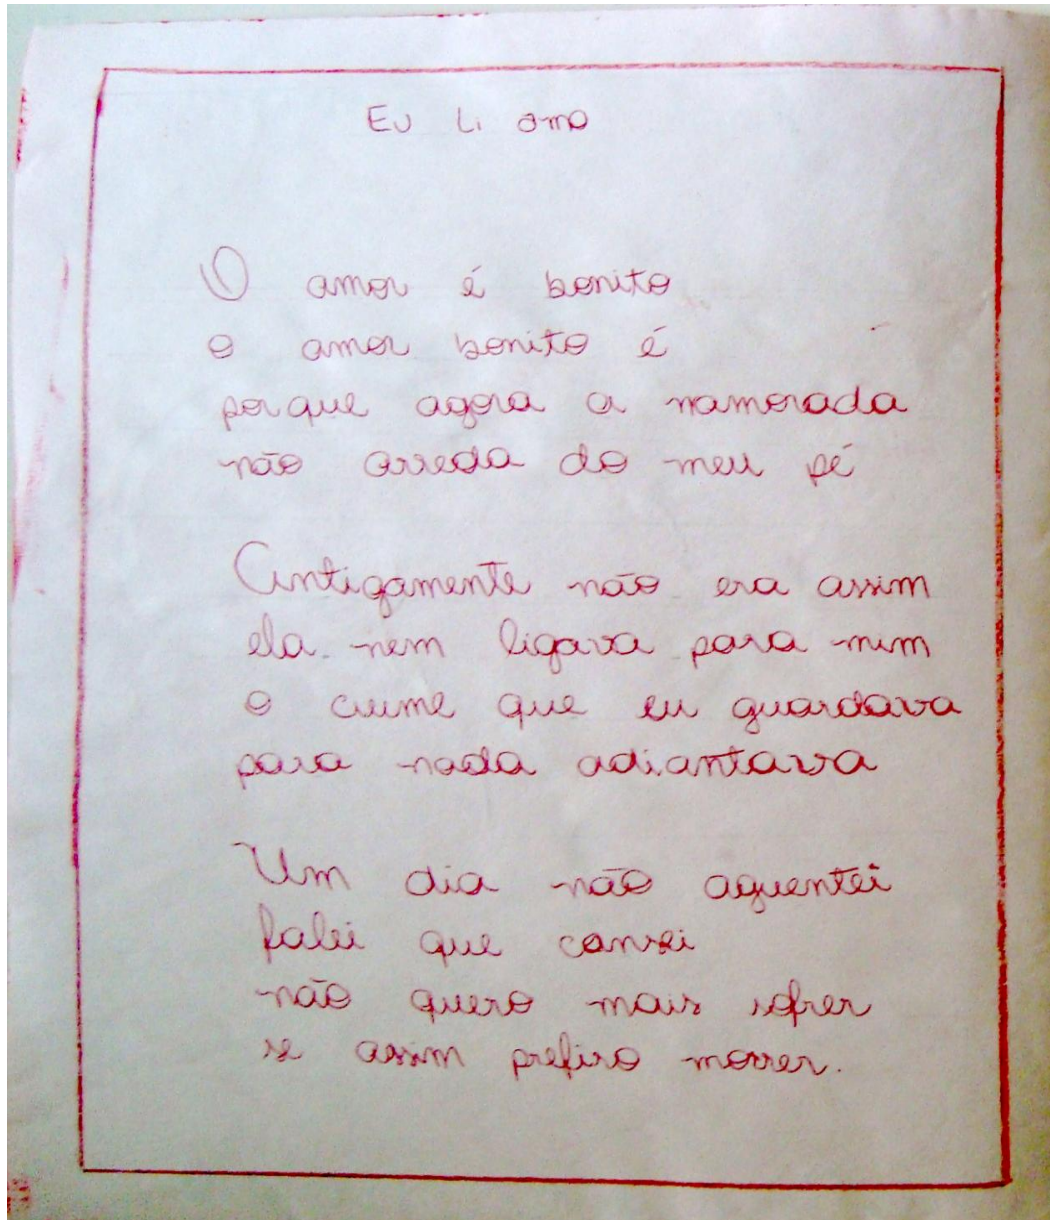 Eu Li amo
O amor é bonito
o amor bonito é
porque agora a namorada
não arreda do meu pé
Antigamente não era assim
ela nem ligava para mim
o ciume que eu guardava
para nada adiantava
Um dia não aguentei
falei que cansei
não quero mais sofrer
se assim prefiro morrer.